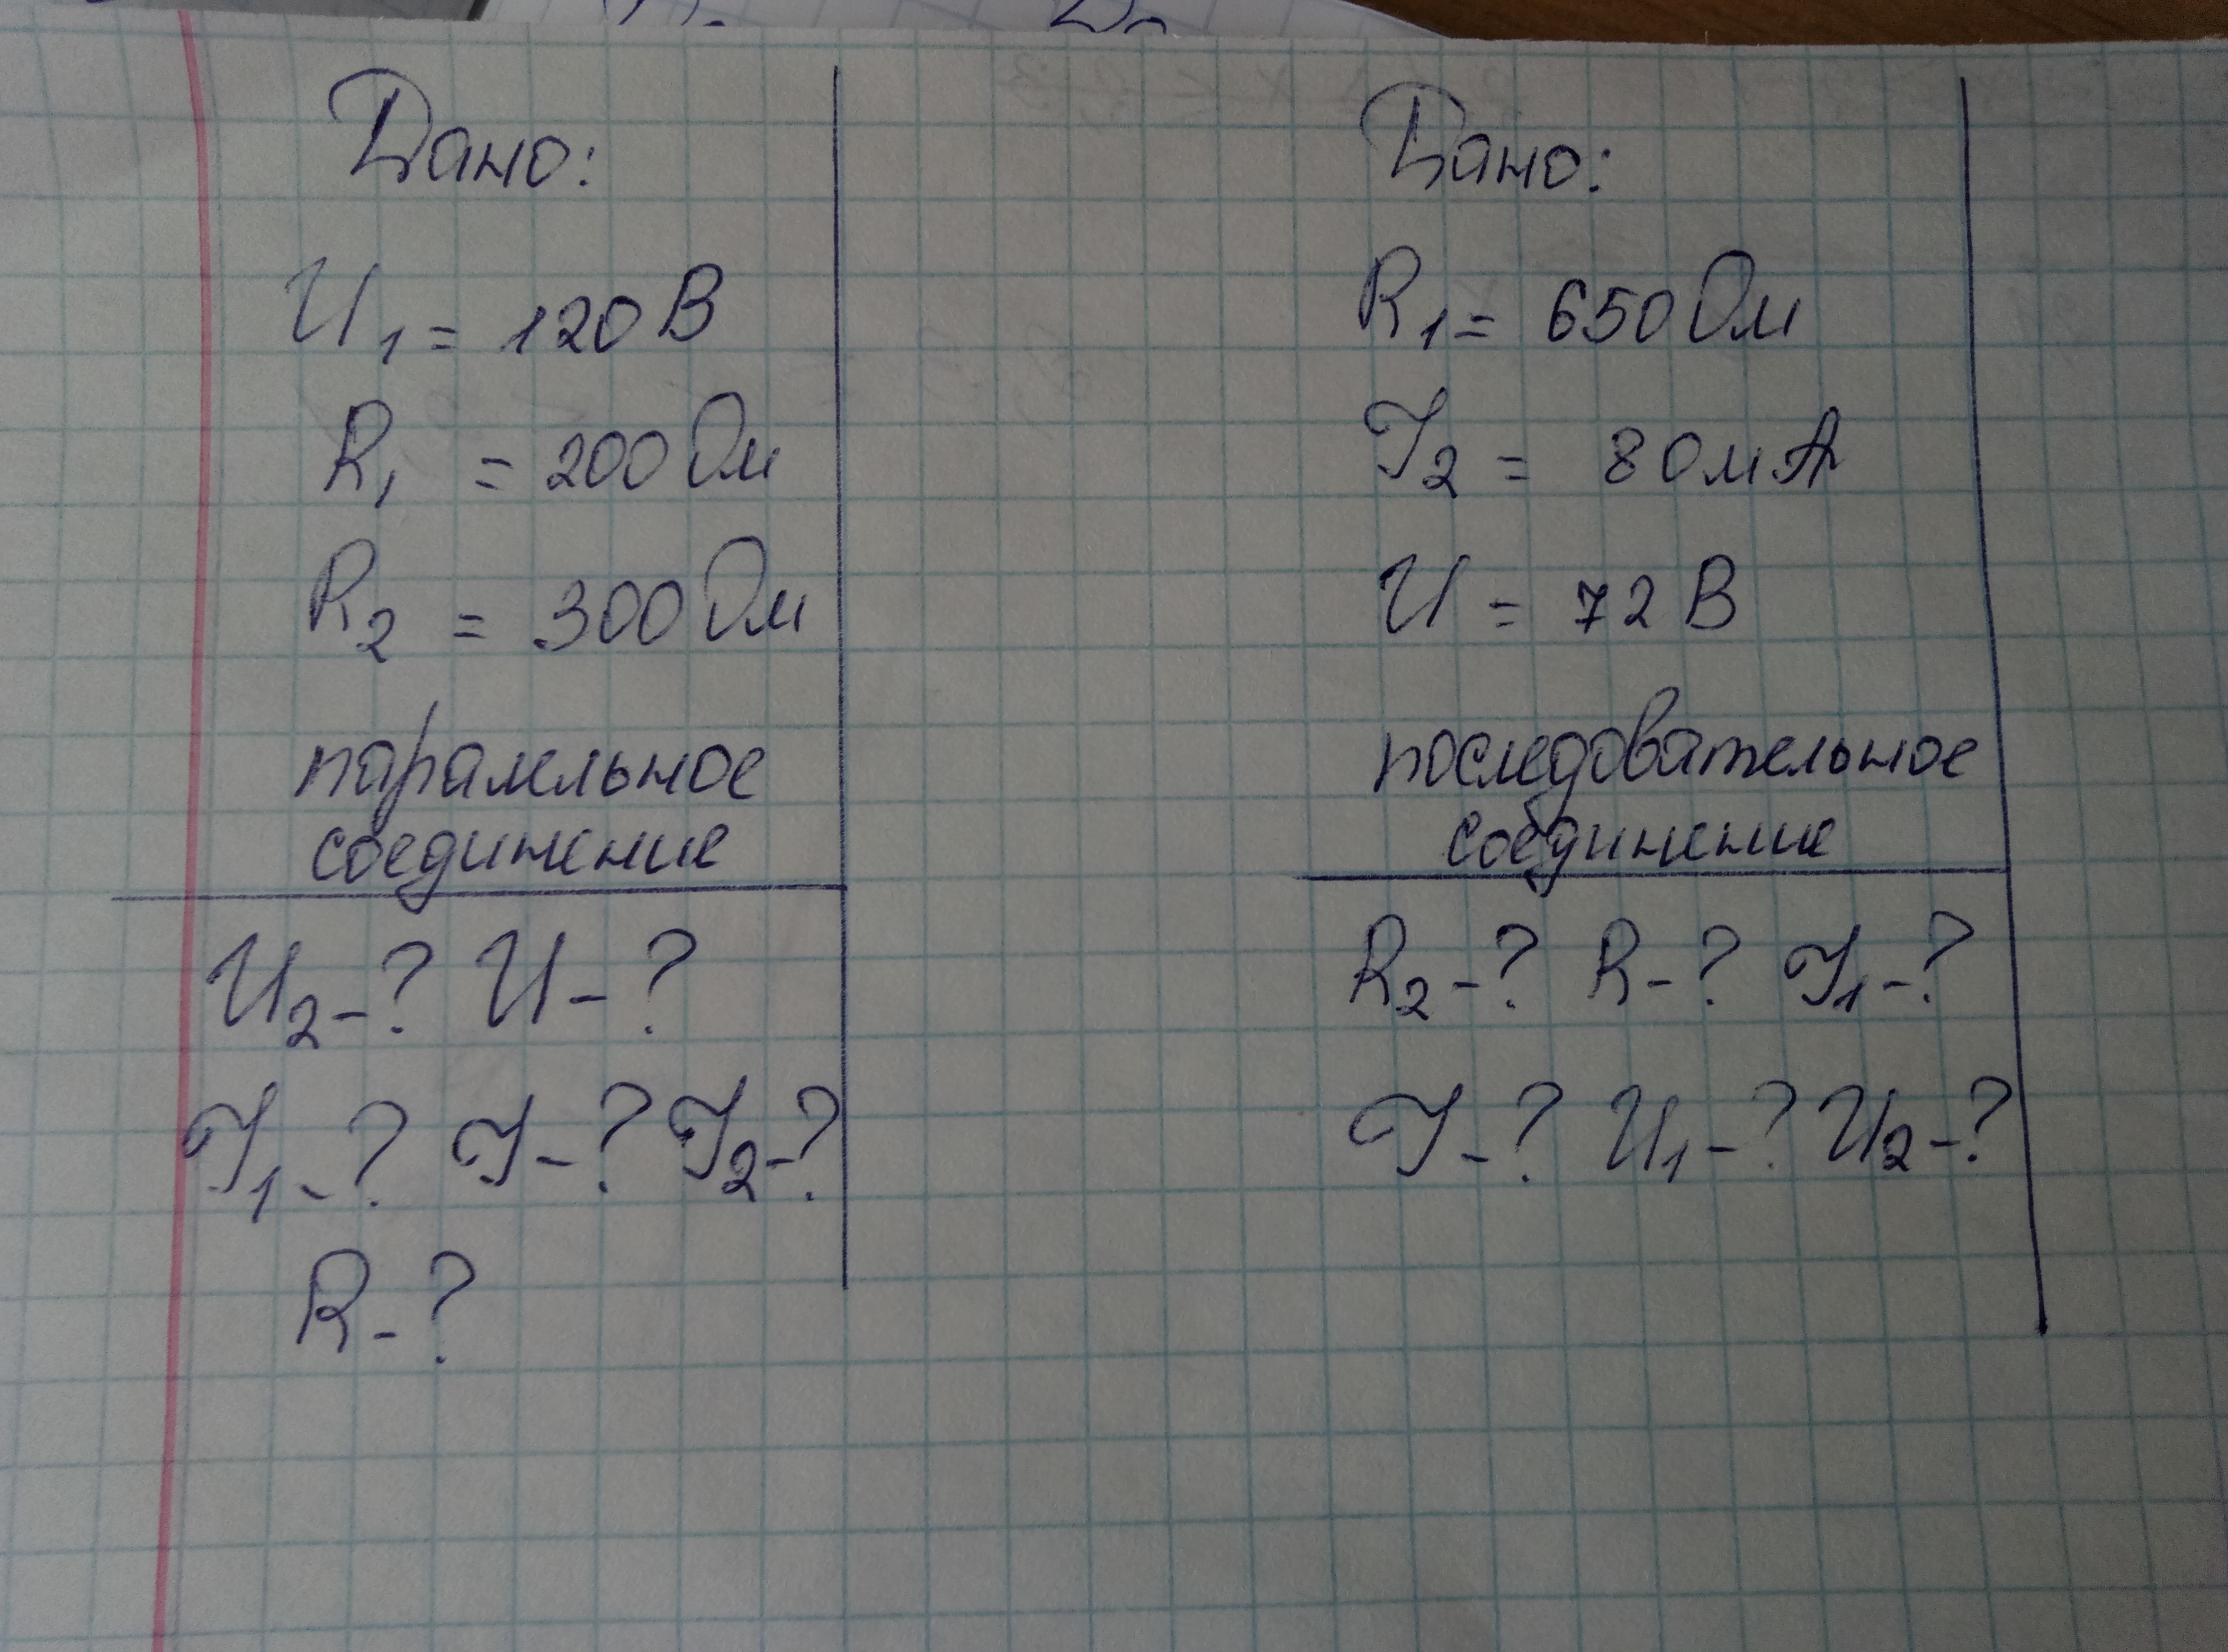 Дано:
U₁ = 120 В
R₁ = 200 Ом
R₂ = 300 Ом
паралельное
соединение
U₂ - ? U - ?
I₁ - ? I - ? I₂ - ?
R - ?
Дано:
R₁ = 650 Ом
I₂ = 80 мА
U = 72 В
последовательное
соединение
R₂ - ? R - ? I₁ - ?
I - ? U₁ - ? U₂ - ?